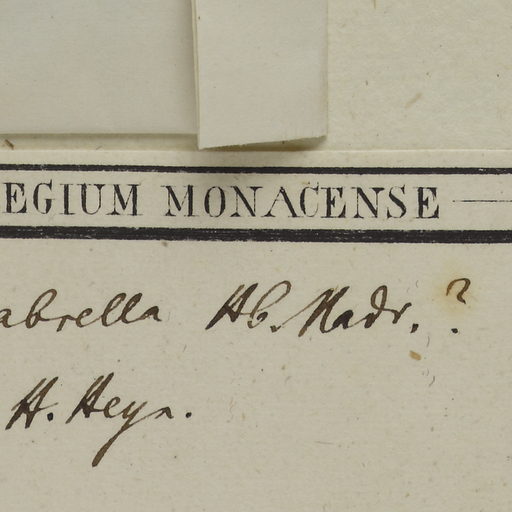 EGIUM MONACENSE
abrella Hb. Madr. ?
H. Heyn.